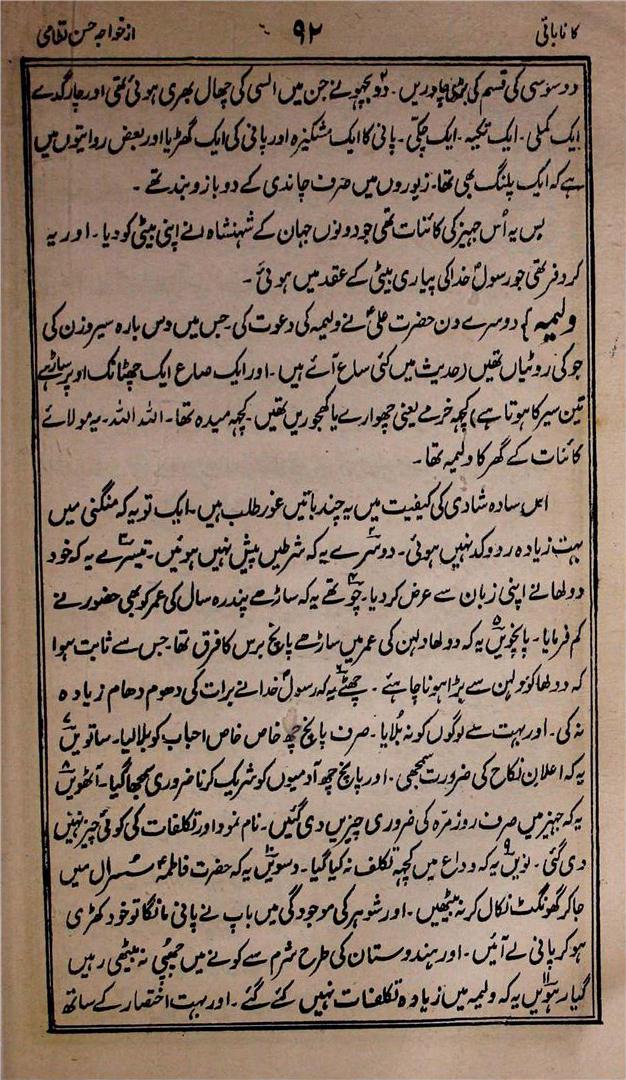 کانا باتی ۹۲ از خواجہ حسن نظامی
دو سوسی کی قسم کی موٹی چادریں۔ دو بچھونے جن میں السی کی چھال بھری ہوئی تھی اور چار گدے
ایک کملی۔ ایک تکیہ۔ ایک چکی۔ پانی کا ایک مشکیزہ اور پانی کی ایک گھڑیا اور بعض روایتوں میں
ہے کہ ایک پلنگ بھی تھا۔ زیوروں میں صرف چاندی کے دو بازو بند تھے۔
بس یہ اُس جہیز کی کائنات تھی جو دونوں جہان کے شہنشاہ نے اپنی بیٹی کو دیا۔ اور یہ
کر و فر تھی جو رسول خدا کی پیاری بیٹی کے عقد میں ہوئی۔
ولیمہ} دوسرے دن حضرت علیؑ نے ولیمہ کی دعوت کی۔ جس میں دس بارہ سیر وزن کی
جو کی روٹیاں تھیں (حدیث میں کئی ساع آئے ہیں۔ اور ایک صاع ایک چھٹانک اوپر ساڑھے
تین سیر کا ہوتا ہے) کچھ خرمے یعنی چھوارے یا کھجوریں تھیں۔ کچھ میدہ تھا۔ اللہ اللہ۔ یہ مولائے
کائنات کے گھر کا ولیمہ تھا۔
اس سادہ شادی کی کیفیت میں یہ چند باتیں غور طلب ہیں۔ ایک تو یہ کہ منگنی میں
بہت زیادہ رد و کد نہیں ہوئی۔ ۲دوسرے یہ کہ شرطیں پیش نہیں ہوئیں۔ ۳تیسرے یہ کہ خود
دولھا نے اپنی زبان سے عرض کر دیا۔ ۴چوتھے یہ کہ ساڑھے پندرہ سال کی عمر کو بھی حضور نے
کم فرمایا۔ ۵پانچویں یہ کہ دولھا دلہن کی عمر میں ساڑھے پانچ برس کا فرق تھا۔ جس سے ثابت ہوا
کہ دولھا کو دلہن سے بڑا ہونا چاہئے۔ ۶چھٹے یہ کہ رسول خدا نے برات کی دھوم دھام زیادہ
نہ کی۔ اور بہت سے لوگوں کو نہ بُلایا۔ صرف پانچ چھ خاص خاص احباب کو بلا لیا۔ ۷ساتویں
یہ کہ اعلان نکاح کی ضرورت سمجھی۔ اور پانچ چھ آدمیوں کو شریک کرنا ضروری سمجھا گیا۔ ۸آٹھویں
یہ کہ جہیز میں صرف روزمرہ کی ضروری چیزیں دی گئیں۔ نام نمود اور تکلفات کی کوئی چیز نہیں
دی گئی۔ ۹نویں یہ کہ وداع میں کچھ تکلف نہ کیا گیا۔ ۱۰دسویں یہ کہ حضرت فاطمہؑ سسرال میں
جا کر گھونگٹ نکال کر نہ بیٹھیں۔ اور شوہر کی موجودگی میں باپ نے پانی مانگا تو خود کھڑی
ہو کر پانی لے آئیں۔ اور ہندوستان کی طرح شرم سے کونے میں چھپی نہ بیٹھی رہیں
۱۱گیارہویں یہ کہ ولیمہ میں زیادہ تکلفات نہیں کئے گئے۔ اور بہت اختصار کے ساتھ